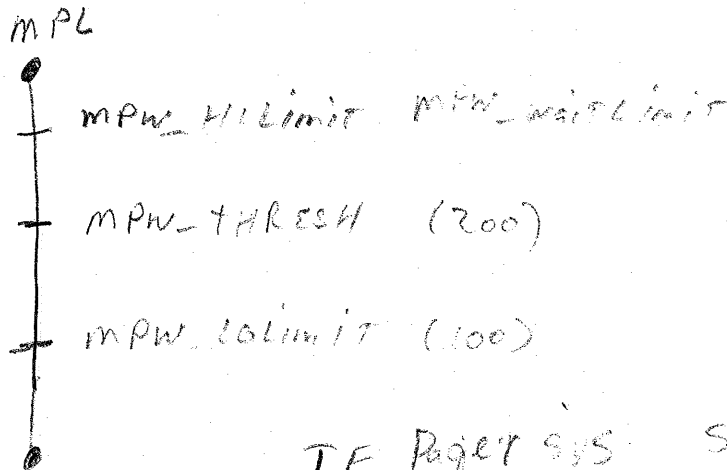 MPL
MPW_HiLimit MPW_waitLimit
MPW_tHRESH (200)
MPW_LOLimit (100)
IF Pager sys S